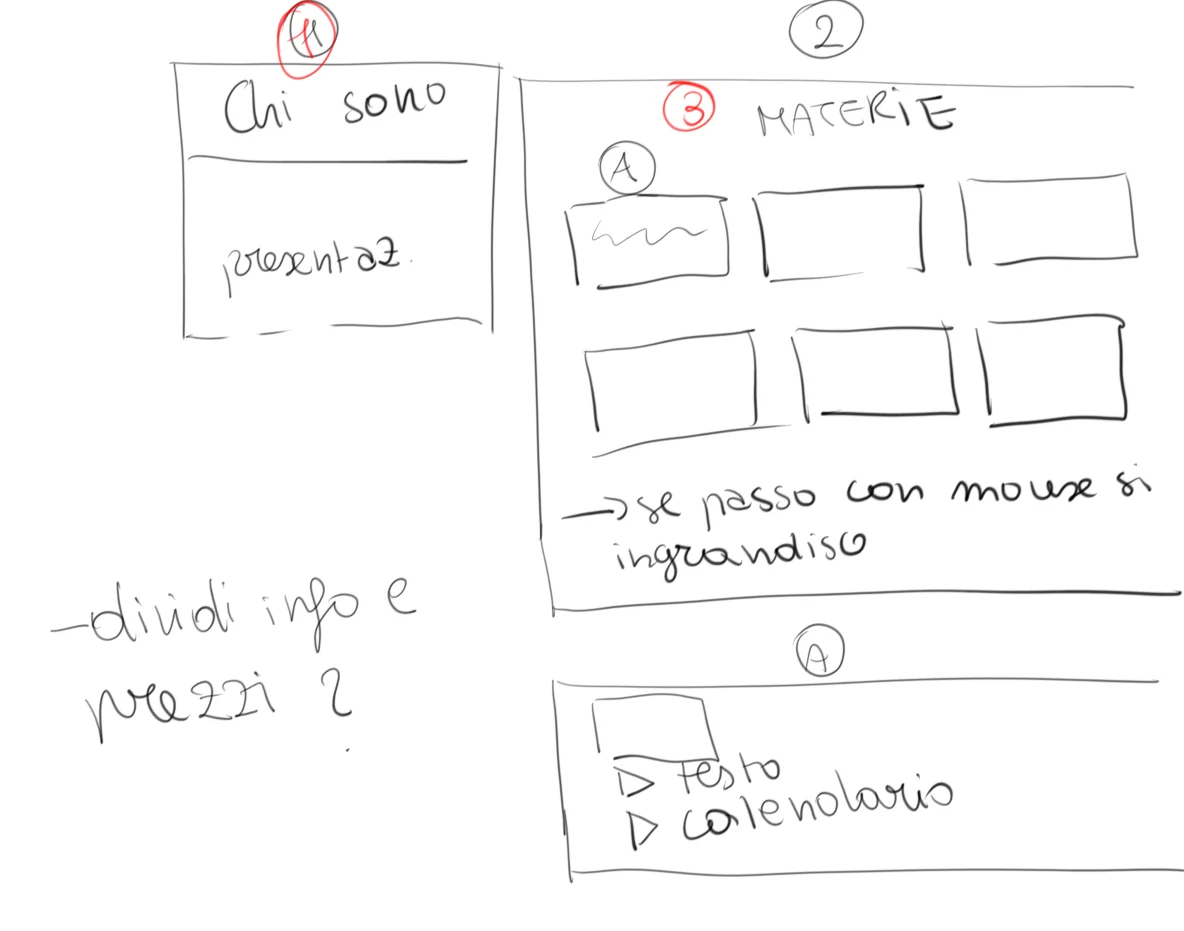 2
Chi sono
presentaz.
3 MATERIE
A
→ se passo con mouse si
ingrandisco
- dividi info e
prezzi ?
A
▷ testo
▷ calendario